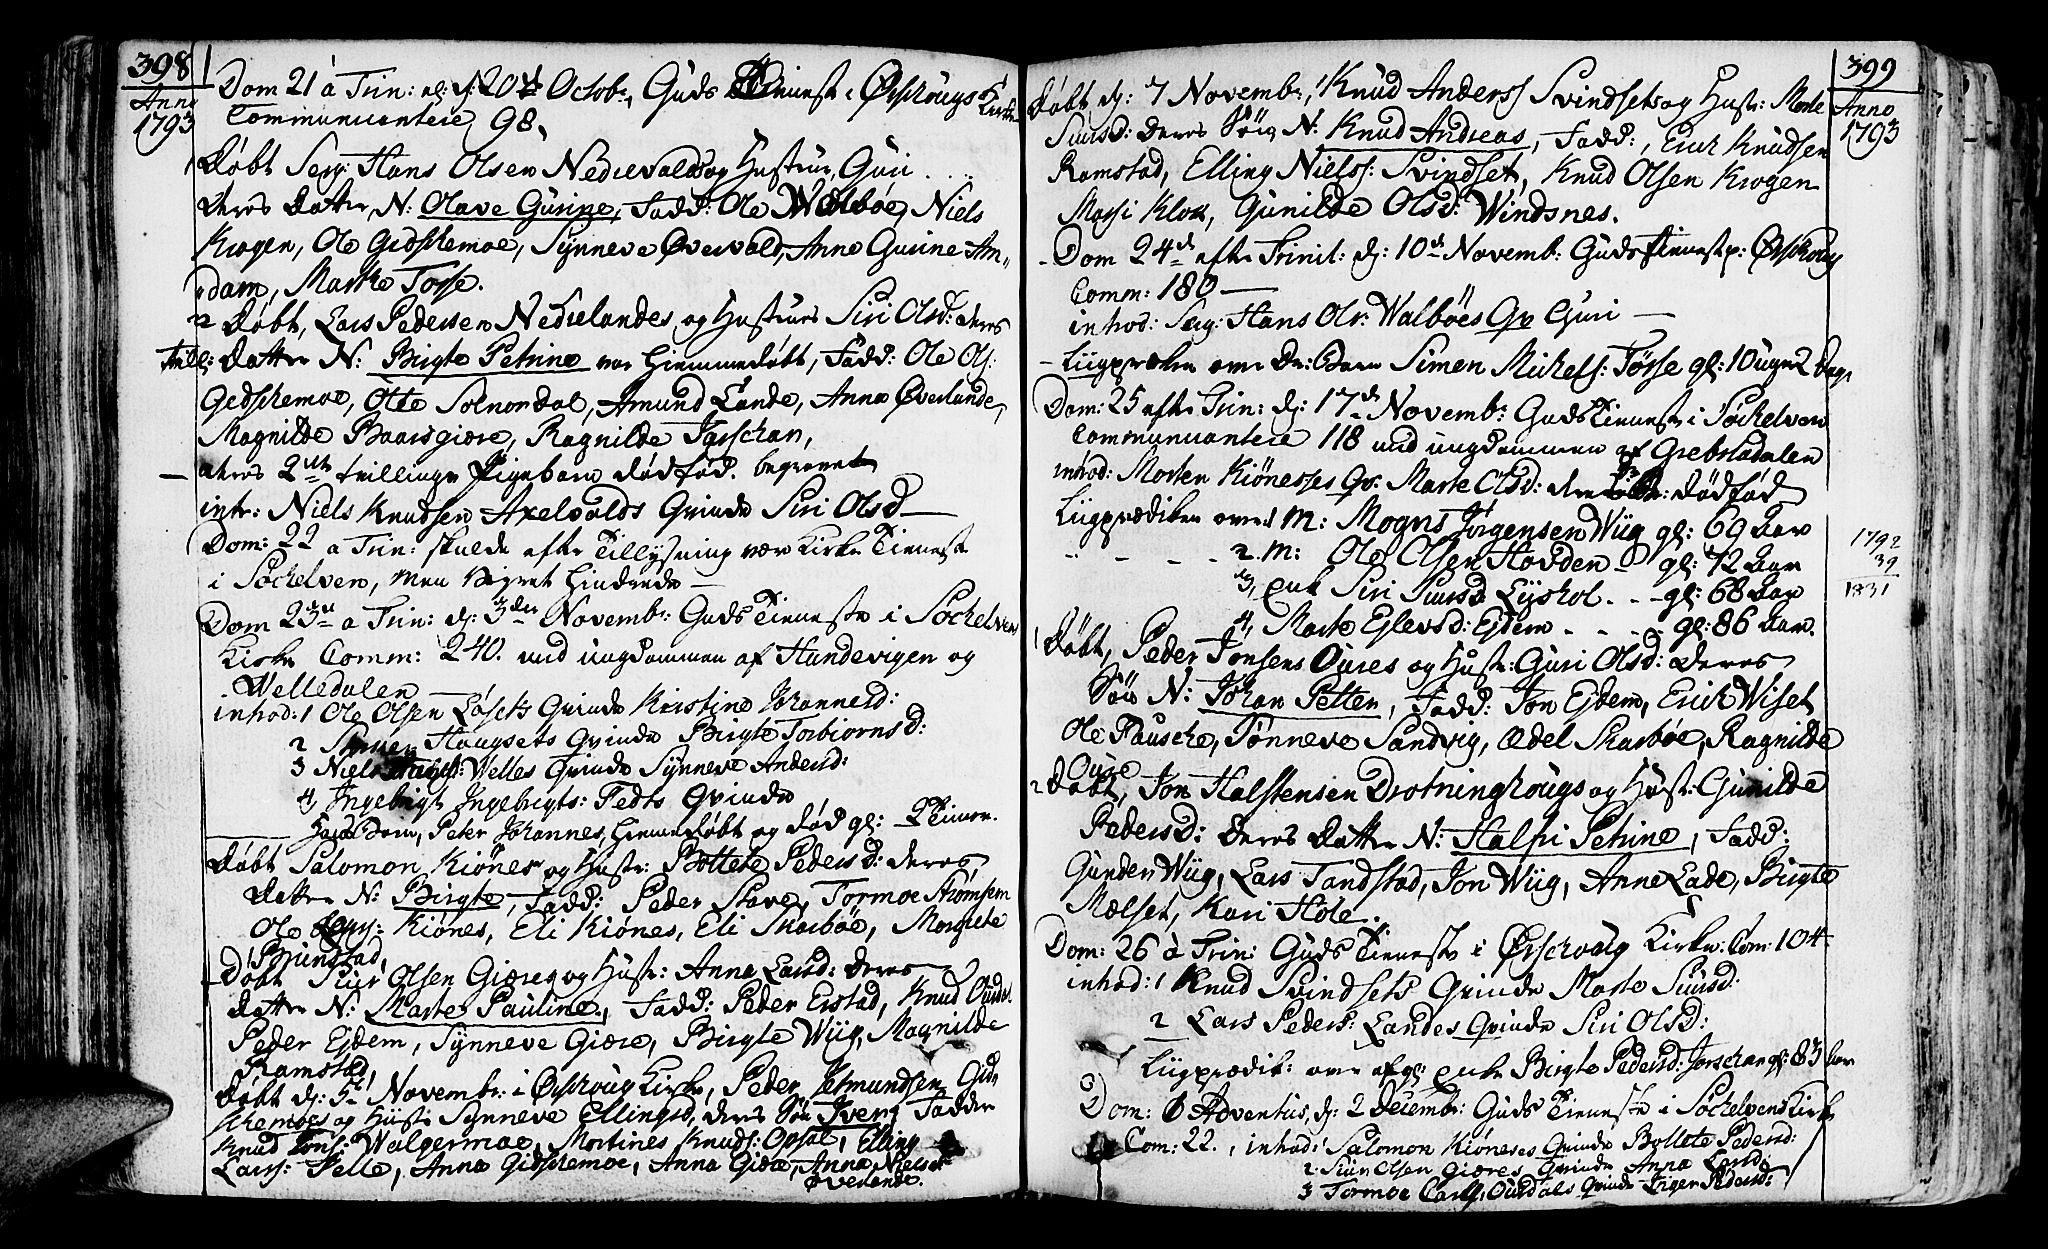 398
Anno
1793
Dom 21 à Trin: d: 20de Octobr, Guds Tieneste i Ørschougs Kirke
Communicantere 98.
1 Døbt Serg: Hans Olsen Nedrevalds og Hustrue, Guri
deres Datter N: Olave Gurine, Fadd: Ole Walbøe, Niels
Krogen, Ole Gidschemoe, Synneve Øvervald, Anna Gurine An-
dam, Marthe Tosse.
2 Døbt, Lars Pedersen Nedrelandes og Hustrues Siri Olsd: deres
Tvill: Datter N: Birgte Petrine var hiemmedøbt, Fadd: Ole Ols:
Gedschemoe, Otte Solnordal, Amund Lande, Anna Øverlande,
Magnilde Baarsgiære, Ragnilde Jarschan,
deres 2den tvillinge Pigebarn dødfød. begravet
intr: Niels Knudsen Axelvolds Qvinde Siri Olsd
Dom: 22 a Trin: skulde efter Tillysning være Kirke Tieneste
i Søchelven, men Veiret hindrede
Dom 23de a Trin: d: 3die Novembr: Guds Tieneste i Søchelvens
Kirke Comm: 240. med ungdommen af Hundevigen og
Welledalen
introd: 1 Ole Olsen Løsets Qvinde Kristine Johannesd:
2 Haugsets Qvinde Birgte Torbiornsd:
3 Niels Welles Qvinde Synneve Andersd:
4, Ingebrigt Ingebrigts: Tedts Qvinde
Barn, Peter Johannes, hiemmedøbt og død gl: 2 Timer.
Døbt Salomon Kiønes og Hustr: Bottete Pedersd: deres
Datter N: Birgte, Fadd: Peder Stave, Tormoe Strømsem
Ole Kiønes, Eli Kiønes, Eli Skarbøe, Margrete
Brunstad,
Døbt Siur Olsen Giæres og Hustr: Anna Larsd: deres
datter N: Marte Pauline, Fadd: Peder Erstad, Knud
Peder Ejdem, Synneve Giære, Birgte Wiig, Magnilde
Ramstad,
Døbt d: 5te Novembr: i Ørschoug Kirke, Peder Jetmundsen Gid-
schemoes og Hustr: Synneve Ellingsd, deres Søn Iver, Fadder
Knud Jons: Walgermoe, Mortines Knuds: Opsal, Elling
Larss: Velle, Anna Gidschemoe, Anna Giære, Anna Nielsd:
Øverlande.
399
Anno
1793
Døbt d: 7 Novembr, Knud Anderss Svindsets og Hustr: Marte
Siursd: deres Søn N: Knud Andreas, Fadd:, Erick Knudsen
Ramstad, Elling Nielss: Svindset, Knud Olsen Krogen
Massi Klok, Gunilde Olsd: Windsnes.
Dom 24de efter Trinit: d: 10de Novemb: Guds Tieneste p: Ørschoug
Comm: 180
introd: Serg: Hans Ols: Walbøes Qv Guri
Liigprædiken over Dr: Barn Simen Mickels: Tosse gl: 10 uger 2 dage
Dom: 25 efter Trin: d: 17de Novemb: Guds Tieneste i Søchelven
Communicantere 118 med ungdommen af Grebstadalen
introd: Morten Kiønesses Qv: Marte Olsd: dødfød
Liigprædiken over 1 M: Mogns Jørgensen Wiig gl: 69 Aar
2. M: Ole Olsen Hovden gl: 72 Aar
3, Enk Siri Siursd Lyshol - - gl: 68 Aar
4, Marte Ejlevsd: Ejdem - - - - gl: 86 Aar.
1792
39
1831
1 Døbt, Peder Jonsens Oures og Hustr: Guri Olsd: deres
Søn N: Johan Petter, Fadd: Jon Ejdem, Erick Wiset
Ole Pausche, Sønneve Sandvig, Ædel Skarbøe, Ragnilde
Oure
2 Døbt, Jon Halstensen Drotninghougs og Hustr: Gunilde
Pedersd: deres Datter N: Halsi Petrine, Fadd:
Gunder Wiig, Lars Tandstad, Jon Wiig, Anne Lade, Birgte
Mælset, Kari Hole.
Dom: 26 à Trin: Guds Tieneste i Ørschoug Kirke: Com: 104.
introd: 1 Knud Svindsets Qvinde Marte Siursd:
2 Lars Peders: Landes Qvinde Siri Olsd:
Liigprædik: over afg: enke Birgte Pedersd: Jarschan gl: 83 Aar
Dom: 1 Adventus, d: 2 Decembr: Guds Tieneste i Søchelvens Kirke
Com: 22., introd: 1 Salomon Kiøneses Qvinde Bottete Pedersd:
2 Siur Olsen Giæres Qvinde Anna Larsd:
3 Tormoe Carls: Ourdals Qvinde Inger Pedersd: